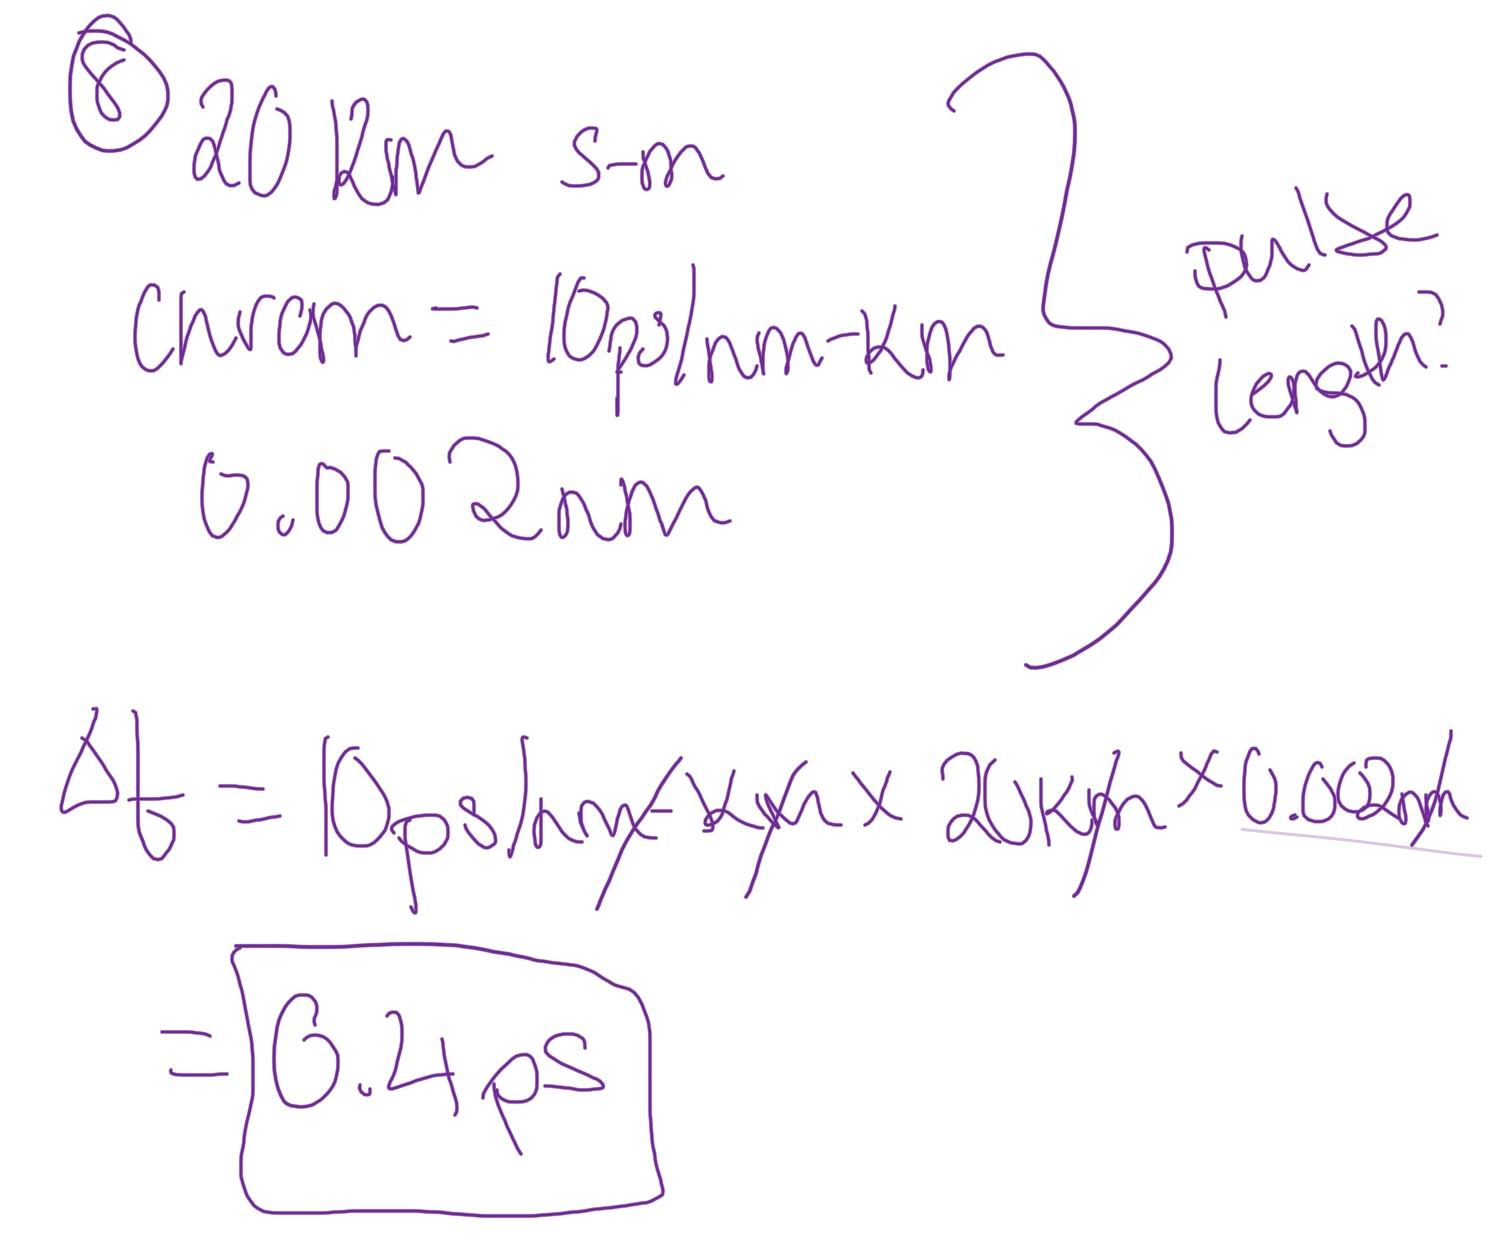 8
20 km s-m
Chrom = 10ps/nm-km
0.002nm
pulse
length?
Δt = 10ps/nm-km × 20km × 0.002nm
= 0.4 ps